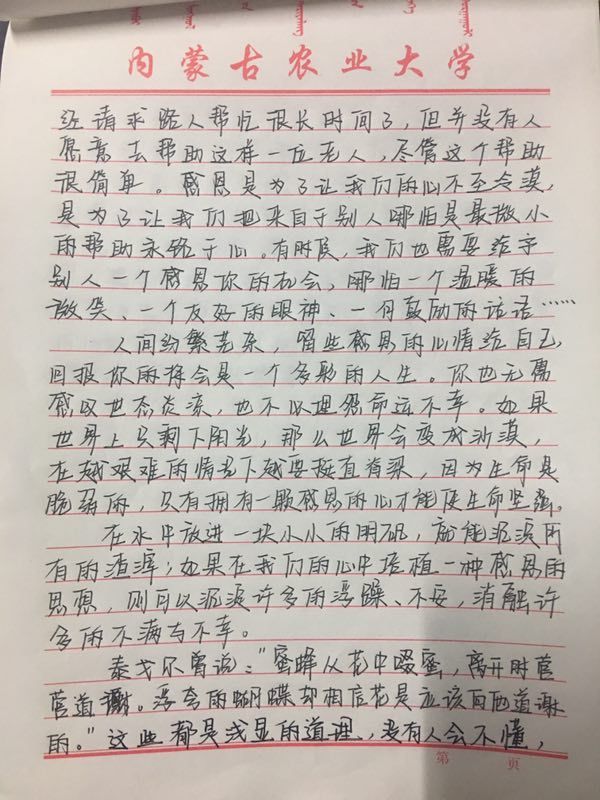 内蒙古农业大学
经请求路人帮忙很长时间了，但并没有人
愿意去帮助这样一位老人，尽管这个帮助
很简单。感恩是为了让我们的心不至冷漠，
是为了让我们把来自于别人哪怕是最微小
的帮助永铭于心。有时候，我们也需要给予
别人一个感恩你的机会，哪怕一个温暖的
微笑、一个友好的眼神、一句鼓励的话语……
人间纷繁芜杂，留些感恩的心情给自己，
回报你的将会是一个多彩的人生。你也无需
感叹世态炎凉，也不必埋怨命运不幸。如果
世界上只剩下阳光，那么世界会变成沙漠，
在越艰难的情况下越要挺直脊梁，因为生命是
脆弱的，只有拥有一颗感恩的心才能使生命坚强。
在水中放进一块小小的明矾，就能沉淀所
有的渣滓；如果在我们的心中培植一种感恩的
思想，则可以沉淀许多的浮躁、不安，消融许
多的不满与不幸。
泰戈尔曾说："蜜蜂从花中啜蜜，离开时营
营道谢。浮夸的蝴蝶却相信花是应该向他道谢
的。"这些都是浅显的道理，没有人会不懂，
第 页